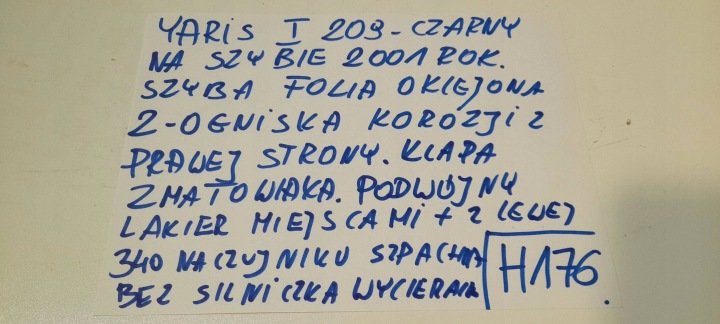 YARIS I 209-CZARNY
NA SZYBIE 2001 ROK.
SZYBA FOLIA OKLEJONA
2-OGNISKA KOROZJI Z
PRAWEJ STRONY. KLAPA
ZMATOWIAŁA. PODWÓJNY
LAKIER MIEJSCAMI + Z LEWEJ
340 NA CZUJNIKU SZPACHLA
BEZ SILNICZKA WYCIERAKA
H176.